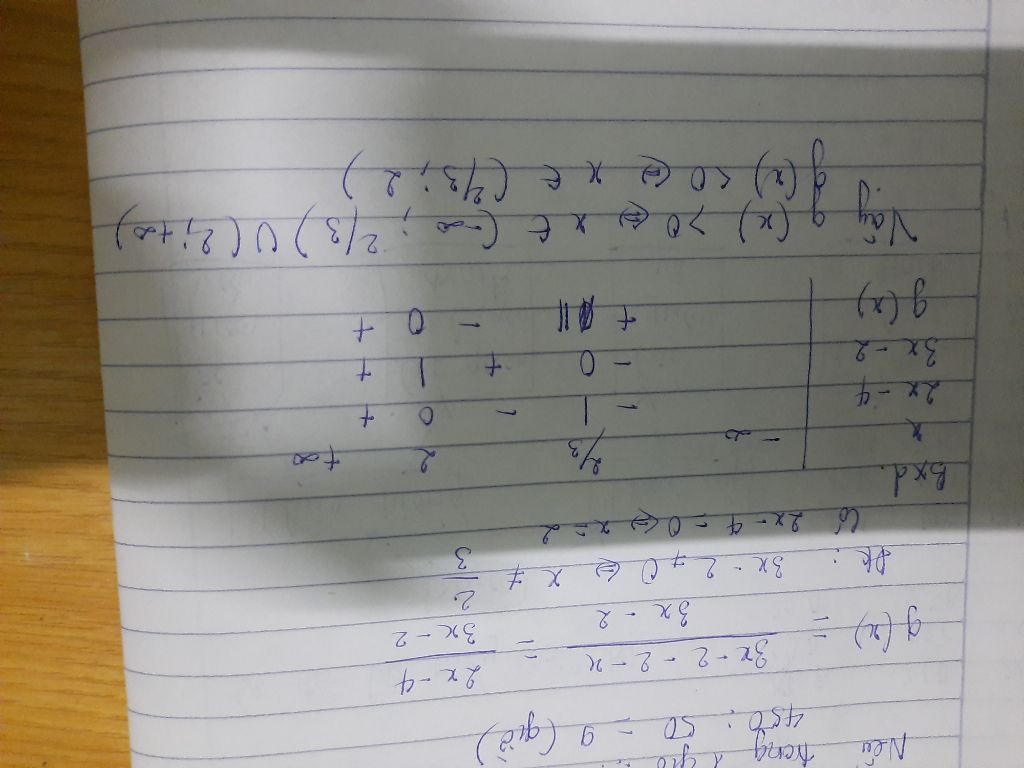 Nếu trong 1 giờ
450 : 50 = 9 (giờ)
g(x) = \frac{3x - 2 - 2 - x}{3x - 2} = \frac{2x - 4}{3x - 2}
Đk : 3x - 2 ≠ 0 ⇔ x ≠ \frac{2}{3}
Có 2x - 4 = 0 ⇔ x = 2
Bxd.
x | -∞ 2/3 2 +∞
2x - 4 | - | - 0 +
3x - 2 | - 0 + | +
g(x) | + || - 0 +
Vậy g(x) > 0 ⇔ x ∈ (-∞ ; 2/3) ∪ (2 ; +∞)
g(x) < 0 ⇔ x ∈ (2/3 ; 2)